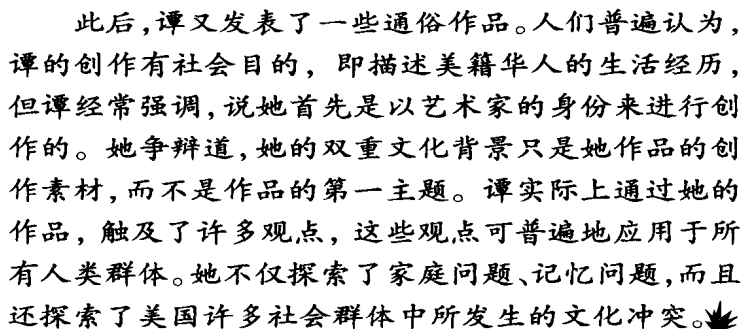 此后,谭又发表了一些通俗作品。人们普遍认为,
谭的创作有社会目的，即描述美籍华人的生活经历,
但谭经常强调,说她首先是以艺术家的身份来进行创
作的。她争辩道,她的双重文化背景只是她作品的创
作素材,而不是作品的第一主题。谭实际上通过她的
作品，触及了许多观点，这些观点可普遍地应用于所
有人类群体。她不仅探索了家庭问题、记忆问题,而且
还探索了美国许多社会群体中所发生的文化冲突。